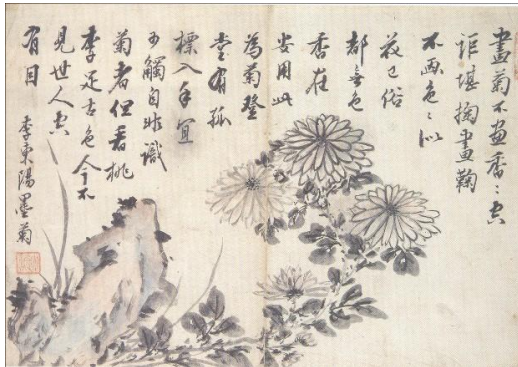 畫菊不畫香香空
詎堪掬畫鞠
不画色色似
花已俗
都無色
香在
安用此
為菊登
堂有孤
標入手宜
可觸自非識
菊者但看桃
李足古色人不
見世人空
有目
李東陽墨菊